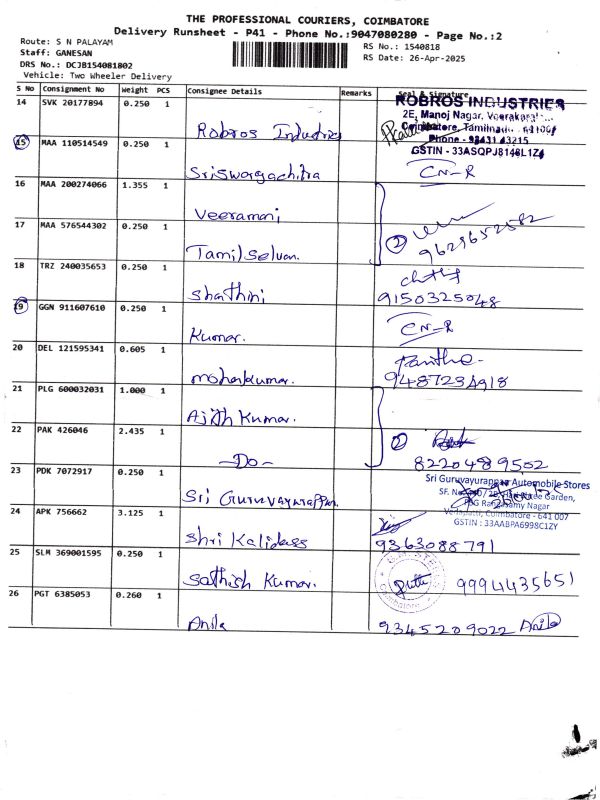 THE PROFESSIONAL COURIERS, COIMBATORE
Delivery Runsheet - P41 - Phone No.:9047080280 - Page No.:2
Route: S N PALAYAM
Staff: GANESAN
DRS No.: DCJB154081802
Vehicle: Two Wheeler Delivery
RS No.: 1540818
RS Date: 26-Apr-2025
S No Consignment No Weight PCS Consignee Details Remarks Seal & Signature
14 SVK 20177894 0.250 1 Robros Industries
ROBROS INDUSTRIES
2E, Manoj Nagar,
Coimbatore, Tamilnadu
Phone -
GSTIN - 33ASQPJ8148L1Z
15 MAA 110514549 0.250 1 Sriswargachitra CN-R
16 MAA 200274066 1.355 1 Veeramani
17 MAA 576544302 0.250 1 Tamil Selvan. 2 9629652582
18 TRZ 240035653 0.250 1 Shathini 9150325048
19 GGN 911607610 0.250 1 Kumar. CN-R
20 DEL 121595341 0.605 1 mohankumar. 9487234918
21 PLG 600032031 1.000 1 Ajith Kumar.
22 PAK 426046 2.435 1 -Do- 2 8220489502
23 PDK 7072917 0.250 1 Sri Guruvayurappan.
Sri Guruvayurappan Automobile Stores
SF. No. Garden,
Nagar
Coimbatore - 641 007
GSTIN : 33AABPA6998C1ZY
24 APK 756662 3.125 1 Shri Kalidass 9363088791
25 SLM 369001595 0.250 1 Sathish Kumar. 9994435651
Coimbatore
26 PGT 6385053 0.260 1 Anila 9345209022 Anila